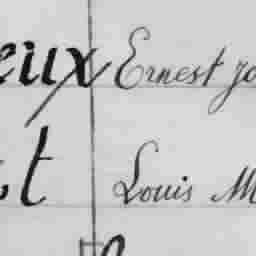 eux Ernest Jo
t Louis M